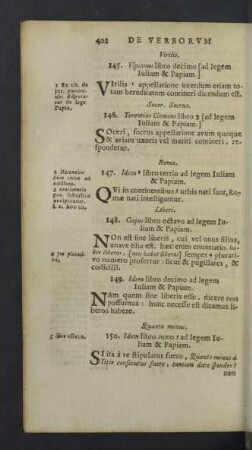 402 DE VERBORVM
Virilis.
145. Vlpianus libro decimo [ad legem
Iuliam & Papiam.]
Virilis appellatione interdum etiam totam
hereditatem contineri dicendum est.
Socer. Socrus.
146. Terentius Clemens libro 2 [ad legem
Iuliam & Papiam.]
Soceri, socrus appellatione avum quoque
& aviam uxoris vel mariti contineri, respondetur.
Roma.
147. Idem libro tertio ad legem Iuliam
& Papiam.
Qui in continentibus urbis nati sunt, Romæ
nati intelliguntur.
Liberi.
148. Gajus libro octavo ad legem Iuliam
& Papiam.
Non est sine liberis, cui vel unus filius,
unave filia est: hæc enim enuntiatio,
numero profertur: sicut & pugillares, &
codicilli.
149. Idem libro decimo ad legem
Iuliam & Papiam.
Nam quem sine liberis esse, dicere non
possumus: hunc necesse est dicamus liberos
habere.
Quanto minus.
150. Idem libro nono ad legem Iuliam
& Papiam.
Si ita à te stipulatus fuero, Quanto minus à
Titio consecutus fuero, tantum dare spondes?
non